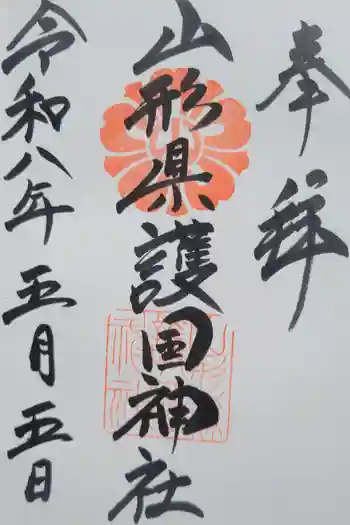 奉拝
山形県護国神社
令和八年五月五日